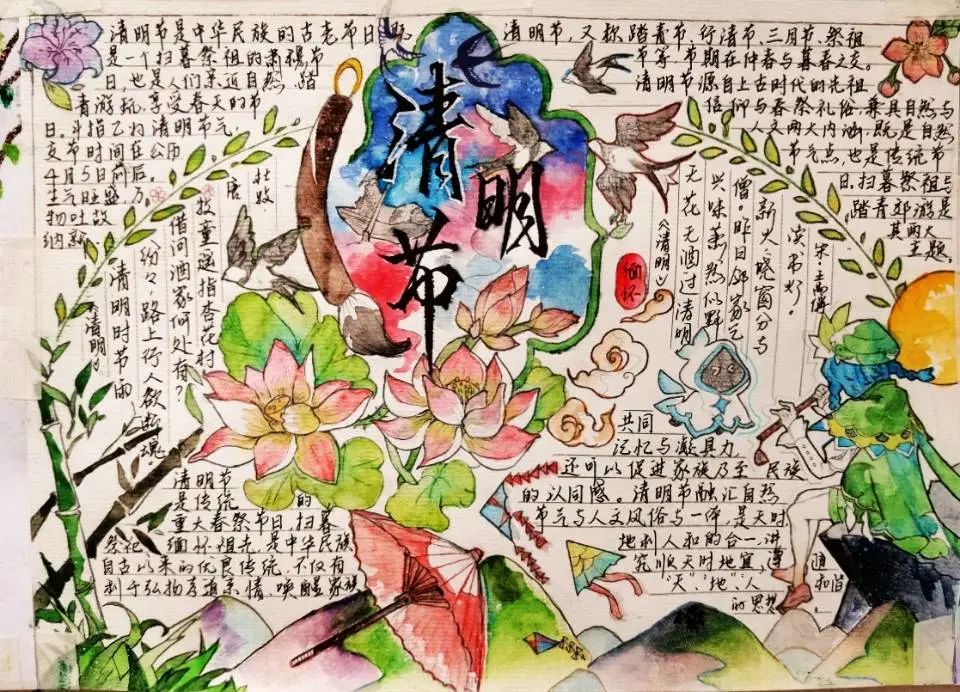 清明节
清明节是中华民族的古老节日,既
是一个扫墓祭祖的肃穆节
日,也是人们亲近自然、踏
青游玩、享受春天的节
日。斗指乙为清明节气,
交节时间在公历
4月5日前后。
生气旺盛,万
物吐故
纳新
清明节,又称踏青节、行清节、三月节、祭祖
节等,节期在仲春与暮春之交。
清明节源自上古时代的先祖
信仰与春祭礼俗,兼具自然与
人文两大内涵,既是自然
节气点,也是传统节
日,扫墓祭祖与
踏青郊游是
其两大
主题
《清明》
唐
杜牧
清明时节雨
纷々,路上行人欲断魂。
借问酒家何处有?
牧童遥指杏花村
《清明》
宋·王禹偁
无花无酒过清明
兴味萧然似野
僧。昨日邻家乞
新火,晓窗分与
读书灯。
缅怀
清明节
是传统的
重大春祭节日,扫墓
祭祀、缅怀祖先,是中华民族
自古以来的优良传统,不仅有
利于弘扬孝道亲情、唤醒家族
共同
记忆与凝具力
还可以促进家族乃至民族
的认同感。清明节融汇自然
节气与人文风俗与一体,是天时
地利人和的合一,讲
究顺天时地宜,遵
“天”、“地”、人
的思想